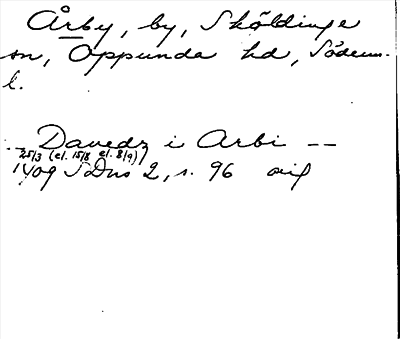 Årby, by, Sköldinge
sn, Oppunda hd, Söderm.
l.
-- Davedz i Arbi --
25/3 (el. 15/8 el. 8/9)
1409 SDns 2, s. 96 orig